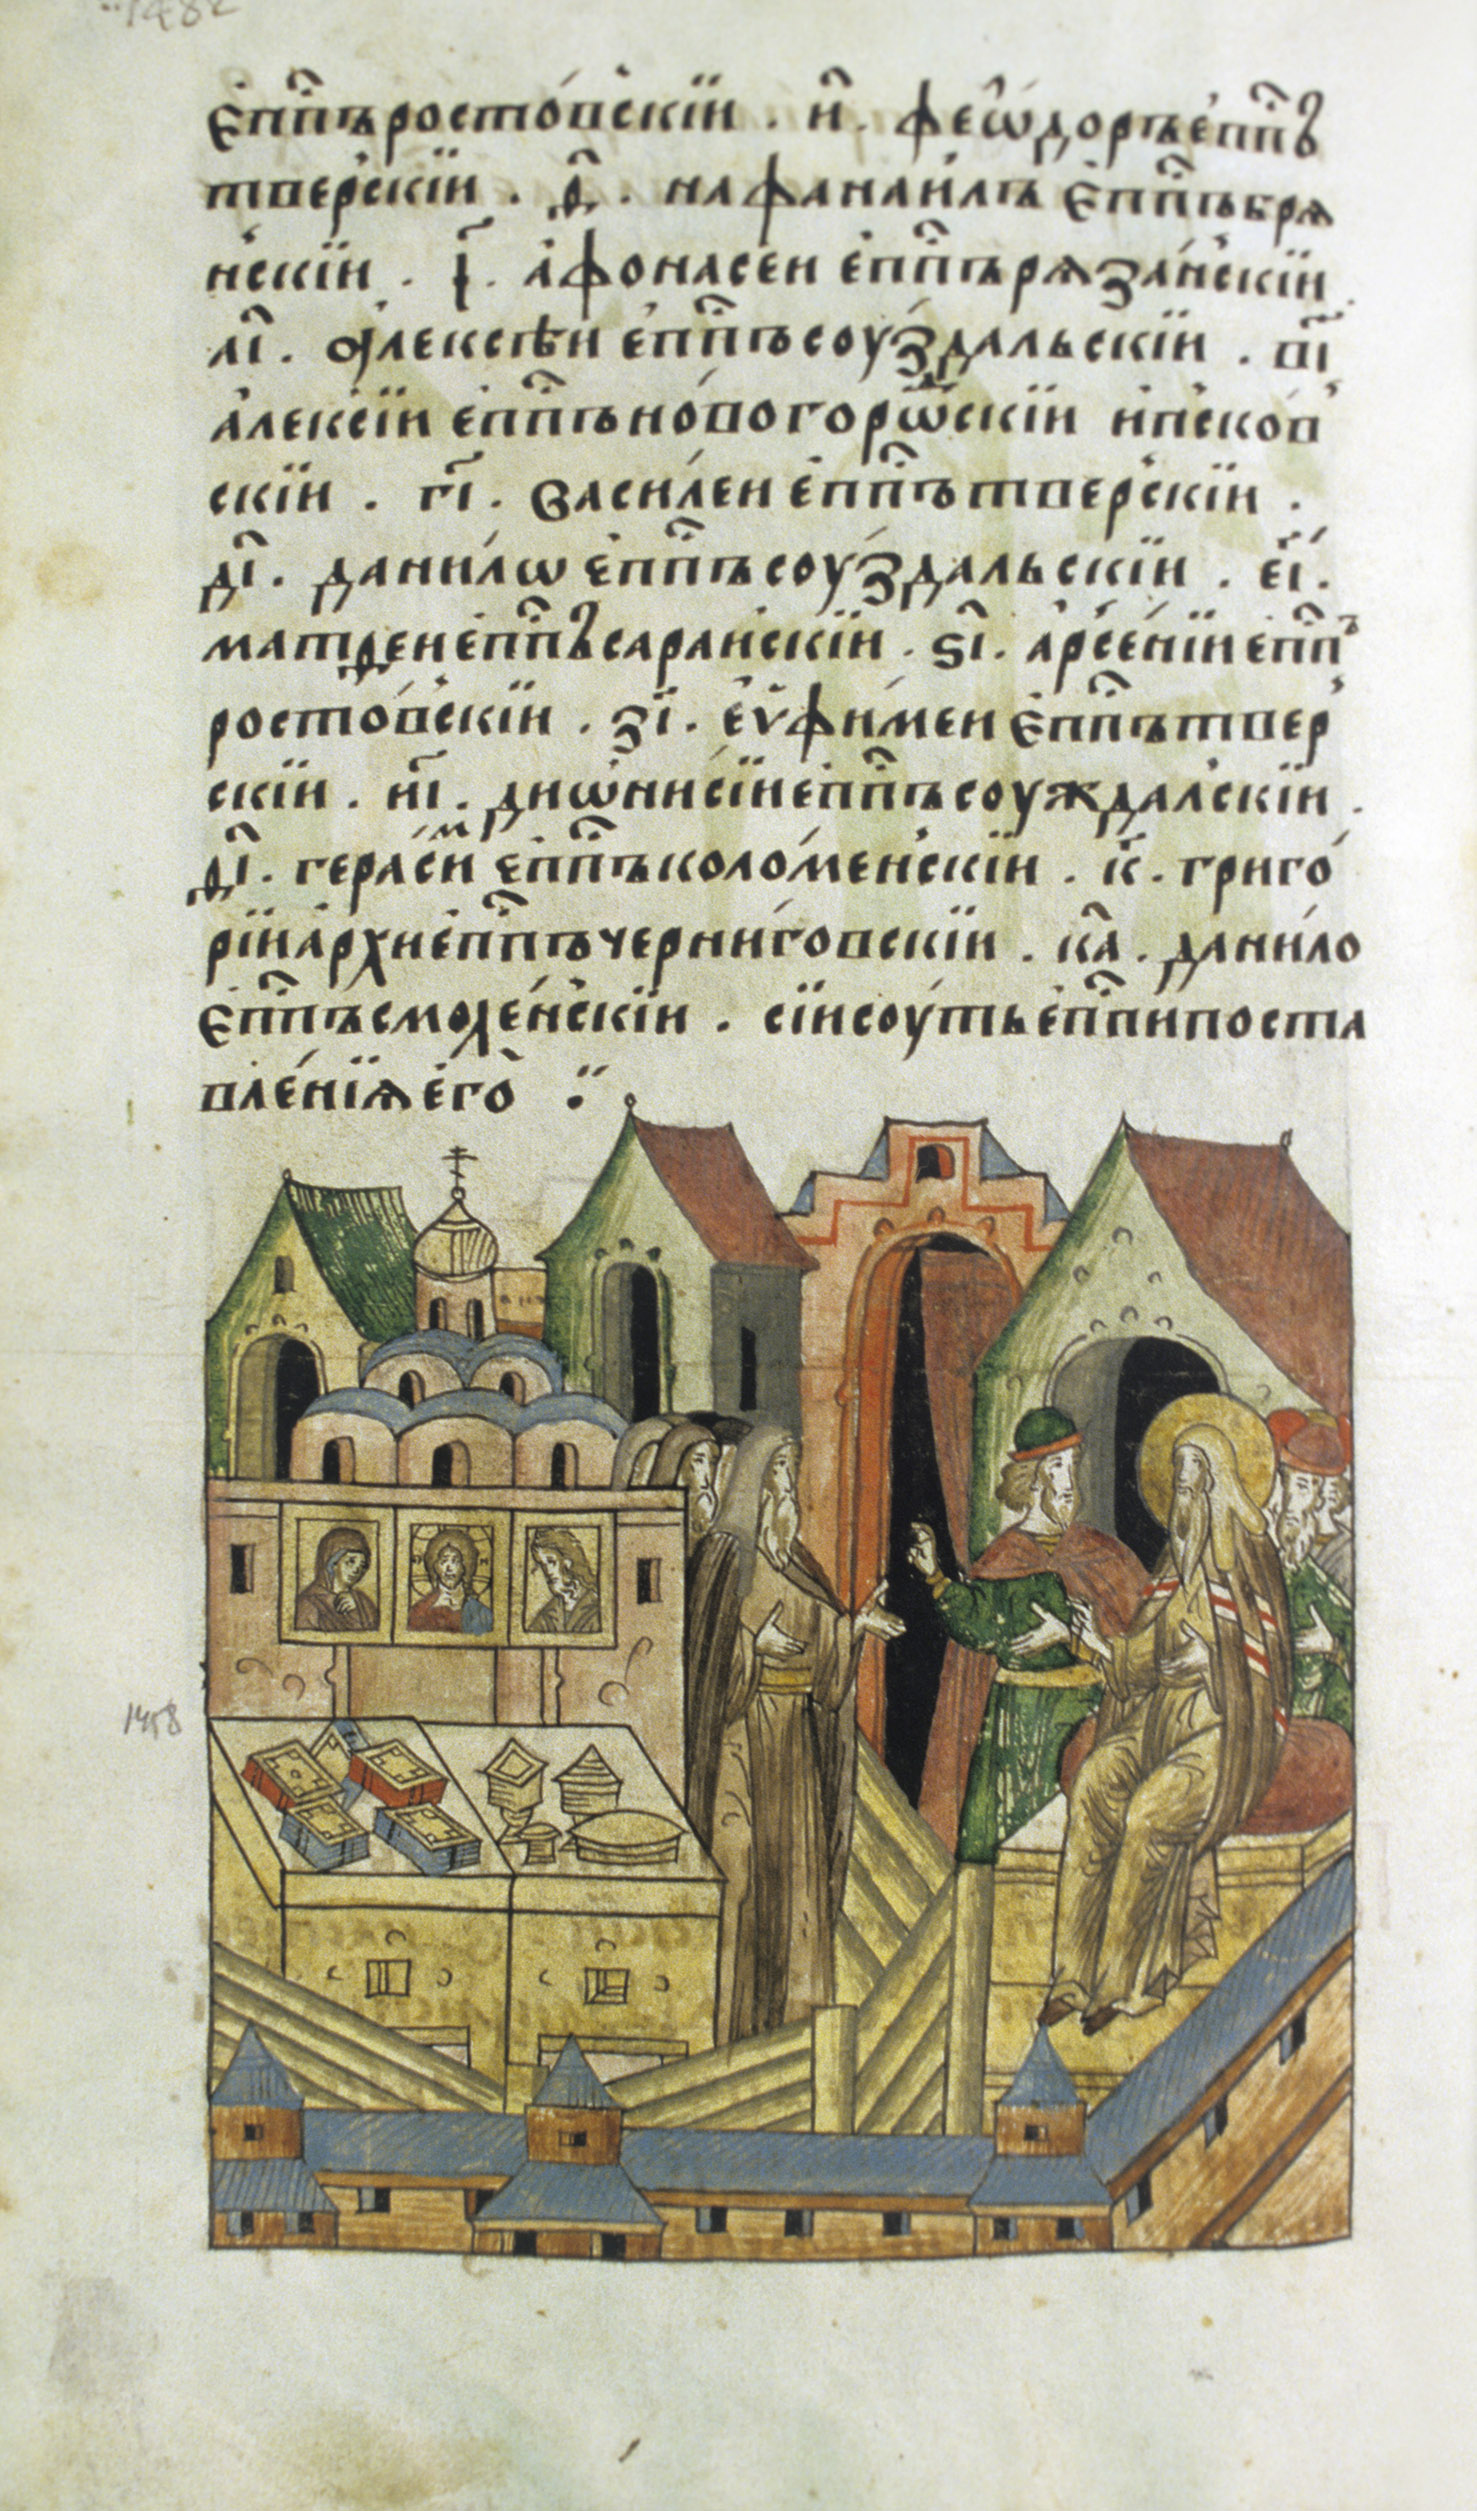 ..1482
є҆пⷭ҇пъ росто́вскїи . и҃ . ѳ҆ео҆́доръ є҆пⷭ҇пъ
твéрскїи . ѳ҃ . наѳанаи́лъ є҆пⷭ҇пъ бря
н́скїи . і҃ . а҆ѳонасеи є҆пⷭ҇пъ рѧза́нскїи
а҃і . ѻ҆лексѣи є҆пⷭ҇пъ соу́здальскїи . в҃і
а҆лексїи є҆пⷭ҇пъ но́вогорѡⷣскїи и҆псков́
скїи . г҃і . васи́леи є҆пⷭ҇пъ твéрскїи .
д҃і . дани́лѡ є҆пⷭ҇пъ соу́здальскїи . є҃і .
матѳеи є҆пⷭ҇пъ сараи́скїи . ѕ҃і . а҆рсе́нїи є҆пⷭ҇пъ
росто́вскїи . з҃і . є҆ѵѳи́меи є҆пⷭ҇пъ твер́
скїи . и҃і . диѡни́сїи є҆пⷭ҇пъ соуждалскїи .
ѳ҃і . гера́симъ є҆пⷭ҇пъ коло́менскїи . к҃ . григо́
рїи а҆рхиє҆пⷭ҇пъ черни́говскїи . к҃а . дани́ло
є҆пⷭ҇пъ смоле́нскїи . сїи соу́ть є҆пⷭ҇пи поста
вле́нїѧ є҆го̀ :~
1458